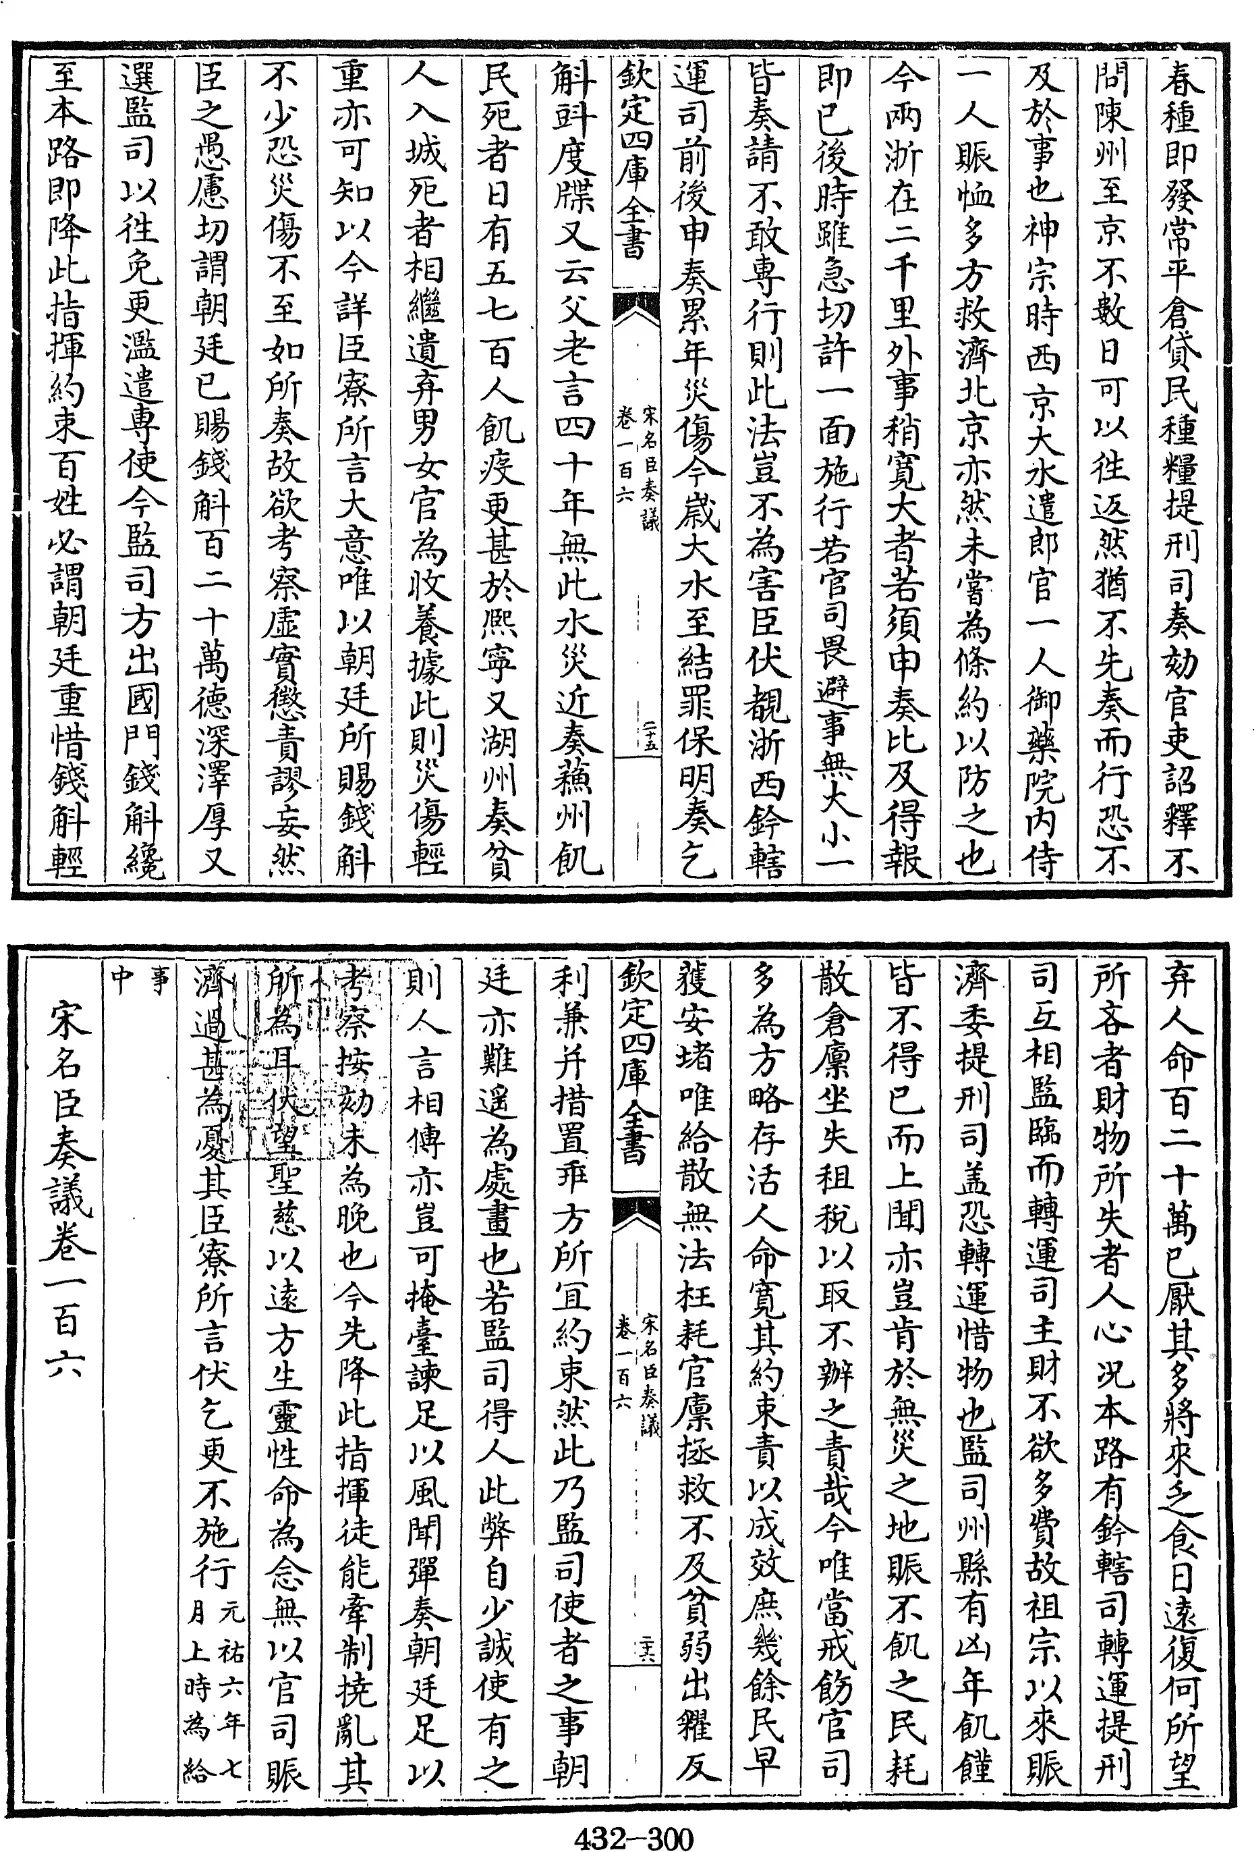 春種即發常平倉貸民種糧提刑司奏劾官吏詔釋不
問陳州至京不數日可以往返然猶不先奏而行恐不
及於事也神宗時西京大水遣郎官一人御藥院内侍
一人賑恤多方救濟北京亦然未嘗為條約以防之也
今兩浙在二千里外事稍寛大者若須申奏比及得報
即已後時雖急切許一面施行若官司畏避事無大小一
皆奏請不敢専行則此法豈不為害臣伏覩浙西鈐轄
運司前後申奏累年災傷今嵗大水至結罪保明奏乞
欽定四庫全書
宋名臣奏議
卷一百六
二十五
斛㪷度牒又云父老言四十年無此水災近奏蘓州飢
民死者日有五七百人飢疫更甚於熈寧又湖州奏貧
人入城死者相繼遺弃男女官為收養據此則災傷輕
重亦可知以今詳臣寮所言大意唯以朝廷所賜錢斛
不少恐災傷不至如所奏故欲考察虚實懲責謬妄然
臣之愚慮切謂朝廷已賜錢斛百二十萬德深澤厚又
選監司以徃免更濫遣専使今監司方出國門錢斛纔
至本路即降此指揮約束百姓必謂朝廷重惜錢斛輕
弃人命百二十萬已厭其多將來乏食日遠復何所望
所吝者財物所失者人心况本路有鈐轄司轉運提刑
司互相監臨而轉運司主財不欲多費故祖宗以來賑
濟委提刑司盖恐轉運惜物也監司州縣有凶年飢饉
皆不得已而上聞亦豈肯於無災之地賑不飢之民耗
散倉廪坐失租稅以取不辦之責哉今唯當戒飭官司
多為方略存活人命寛其約束責以成效庶幾餘民早
獲安堵唯給散無法枉耗官廪拯救不及貧弱出糶反
欽定四庫全書
宋名臣奏議
卷一百六
二十六
利兼并措置乖方所宜約束然此乃監司使者之事朝
廷亦難遥為處畫也若監司得人此弊自少誠使有之
則人言相傳亦豈可掩臺諫足以風聞彈奏朝廷足以
考察按劾未為晚也今先降此指揮徒能牽制撓亂其
所為耳伏望聖慈以逺方生靈性命為念無以官司賑
濟過甚為憂其臣寮所言伏乞更不施行元祐六年七
月上時為給
事
中
宋名臣奏議卷一百六
432-300